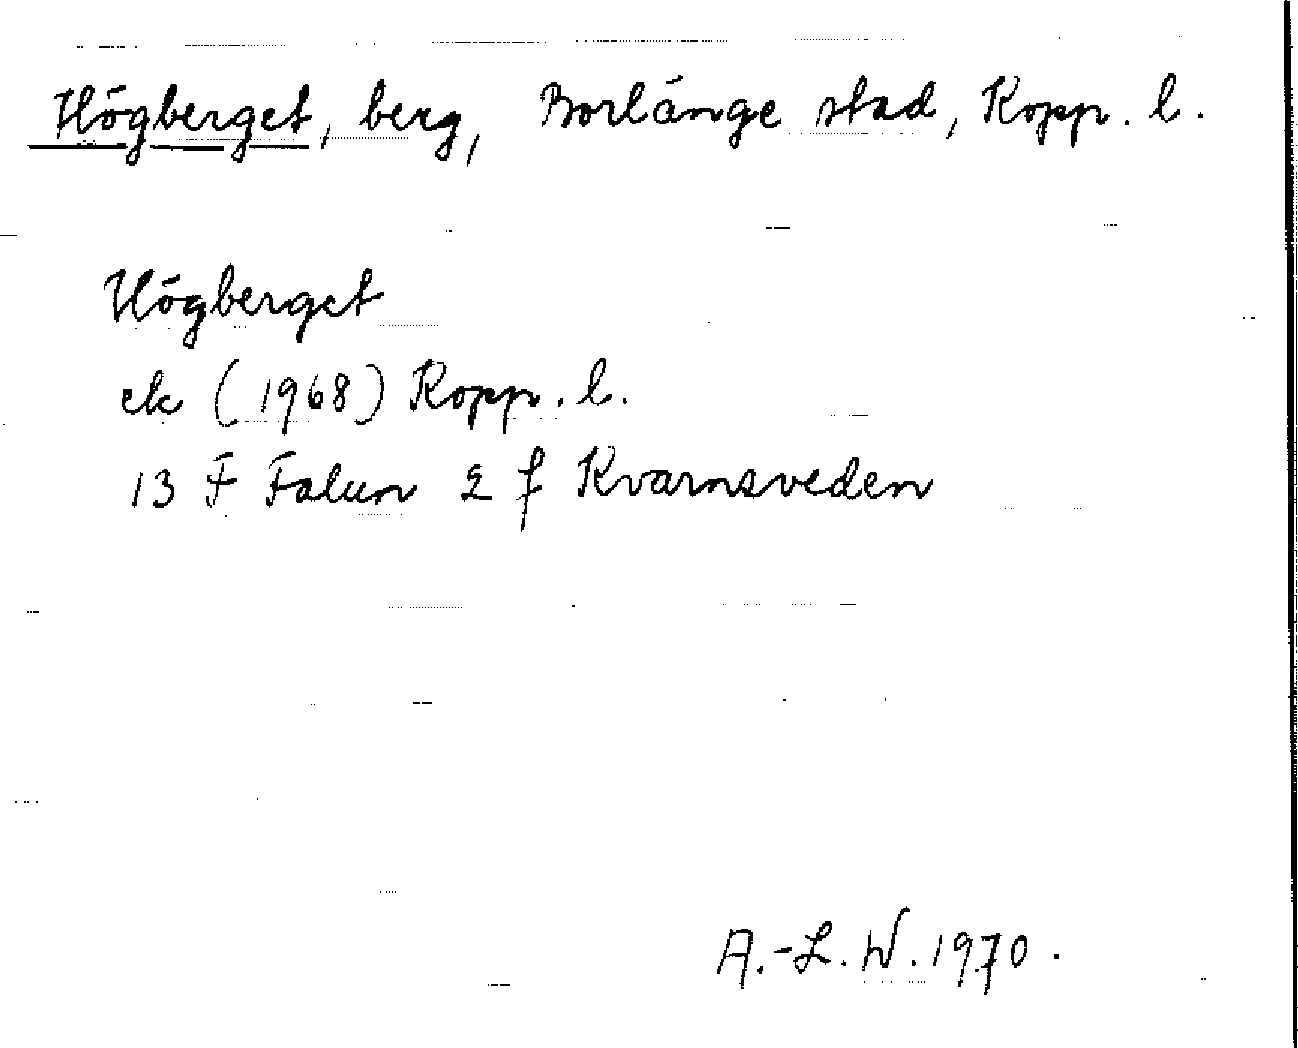 Högberget, berg, Borlänge stad, Kopp. l.
Högberget
ek (1968) Kopp. l.
13 F Falun 2 f Kvarnsveden
A.-L. W. 1970.